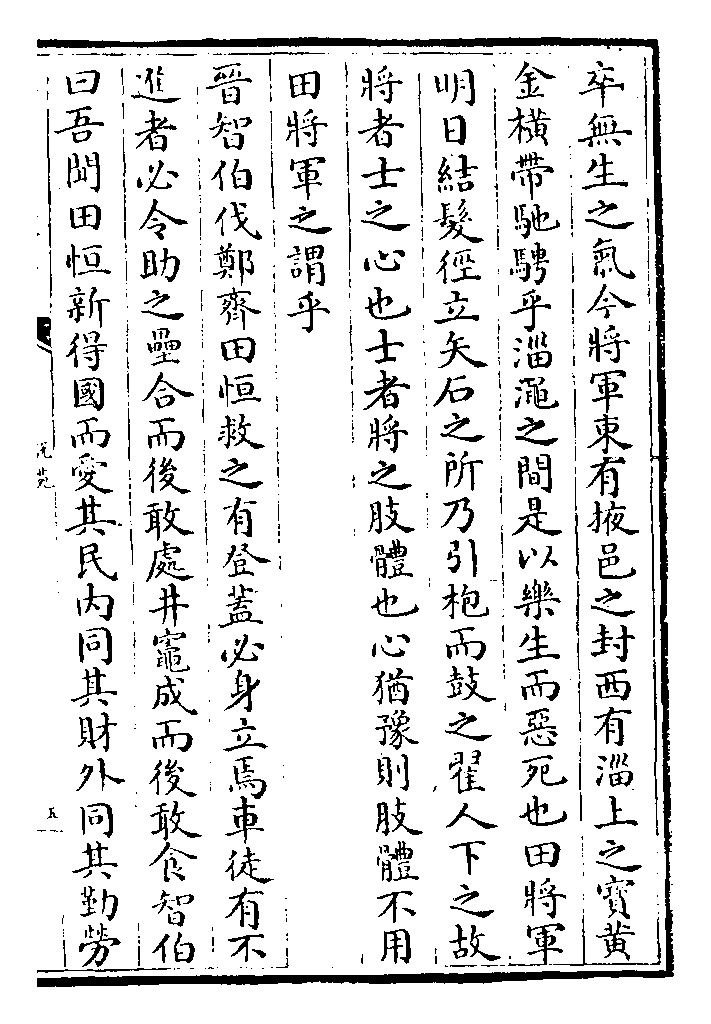 卒無生之氣今將軍東有掖邑之封西有淄上之寳黄
金橫帶馳騁乎淄澠之間是以樂生而惡死也田將軍
明日結髮徑立矢石之所乃引枹而鼓之翟人下之故
將者士之心也士者將之肢體也心猶豫則肢體不用
田將軍之謂乎
晉智伯伐鄭齊田恒救之有登蓋必身立焉車徒有不
進者必令助之壘合而後敢處井竈成而後敢食智伯
曰吾聞田恒新得國而愛其民内同其財外同其勤勞
說苑
五